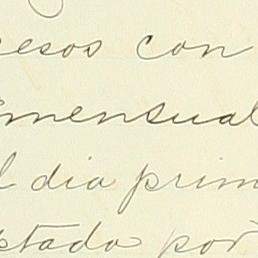 esos con
mensual
l dia prim
ptado por